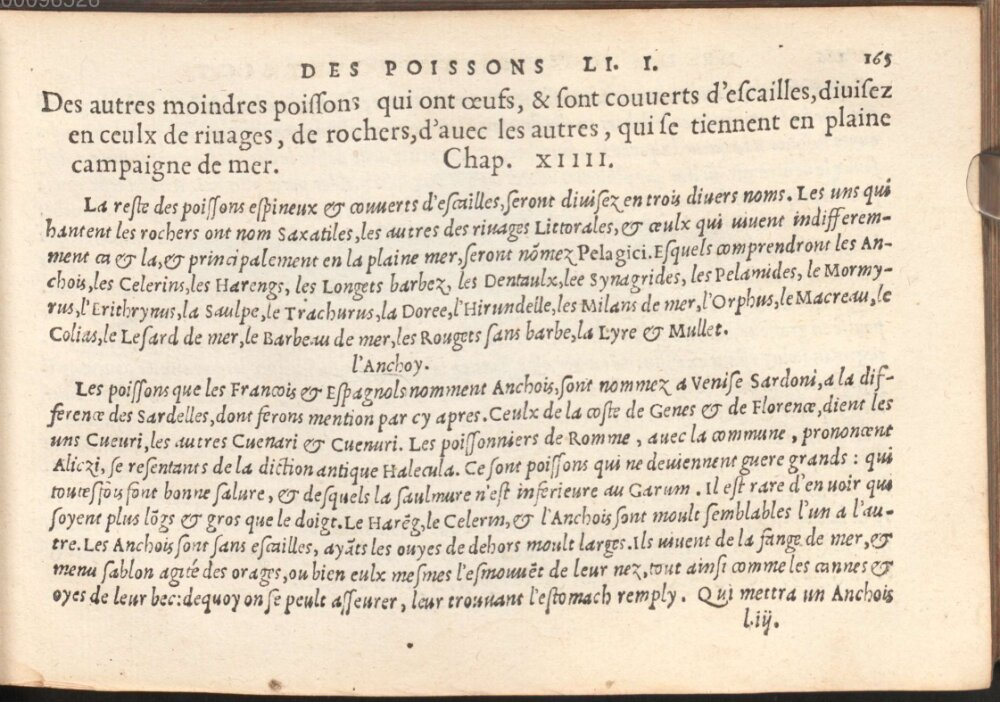 00098526
DES POISSONS LI. I. 165
Des autres moindres poiſſons qui ont œufs, & ſont couuerts d'eſcailles, diuiſez
en ceulx de riuages, de rochers, d'auec les autres, qui ſe tiennent en plaine
campaigne de mer. Chap. XIIII.
La reſte des poiſſons eſpineux & couuerts d'eſcailles, ſeront diuiſez en trois diuers noms. Les uns qui
hantent les rochers ont nom Saxatiles, les autres des riuages Littorales, & ceulx qui uiuent indifferem-
ment ca & la, & principalement en la plaine mer, ſeront nõmez Pelagici. Eſquels comprendront les An-
chois, les Celerins, les Harengs, les Longets barbez, les Dentaulx, lee Synagrides, les Pelamides, le Mormy-
rus, l'Erithrynus, la Saulpe, le Trachurus, la Doree, l'Hirundelle, les Milans de mer, l'Orphus, le Macreau, le
Colias, le Leſard de mer, le Barbeau de mer, les Rougets ſans barbe, la Lyre & Mullet.
l'Anchoy.
Les poiſſons que les Francois & Eſpagnols nomment Anchois, ſont nommez a Veniſe Sardoni, a la dif-
ference des Sardelles, dont ferons mention par cy apres. Ceulx de la coſte de Genes & de Florence, dient les
uns Cueuri, les autres Cuenari & Cuenuri. Les poiſſonniers de Romme, auec la commune, prononcent
Aliczi, ſe reſentants de la diction antique Halecula. Ce ſont poiſſons qui ne deuiennent guere grands : qui
touteſfois ſont bonne ſalure, & deſquels la ſaulmure n'eſt inferieure au Garum. Il eſt rare d'en uoir qui
ſoyent plus lõgs & gros que le doigt. Le Harẽg, le Celerin, & l'Anchois ſont moult ſemblables l'un a l'au-
tre. Les Anchois ſont ſans eſcailles, ayãts les ouyes de dehors moult larges. Ils uiuent de la fange de mer, &
menu ſablon agité des orages, ou bien eulx meſmes l'eſmouuẽt de leur nez, tout ainſi comme les cannes &
oyes de leur bec: dequoy on ſe peult aſſeurer, leur trouuant l'eſtomach remply. Qui mettra un Anchois
L iij.